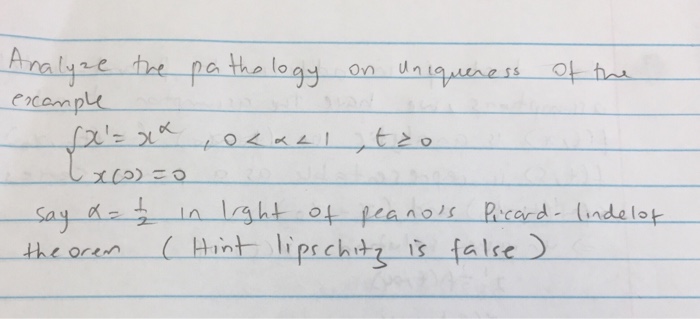 Analyze the pathology on uniqueness of the
example
{ x' = x^α , 0 < α < 1 , t ≥ 0
x(0) = 0
say α = 1/2 in light of peano's Picard-lindelof
theorem ( Hint lipschitz is false )